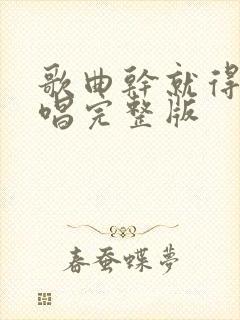 歌曲幹就得
唱完整版
春蚕蝶夢